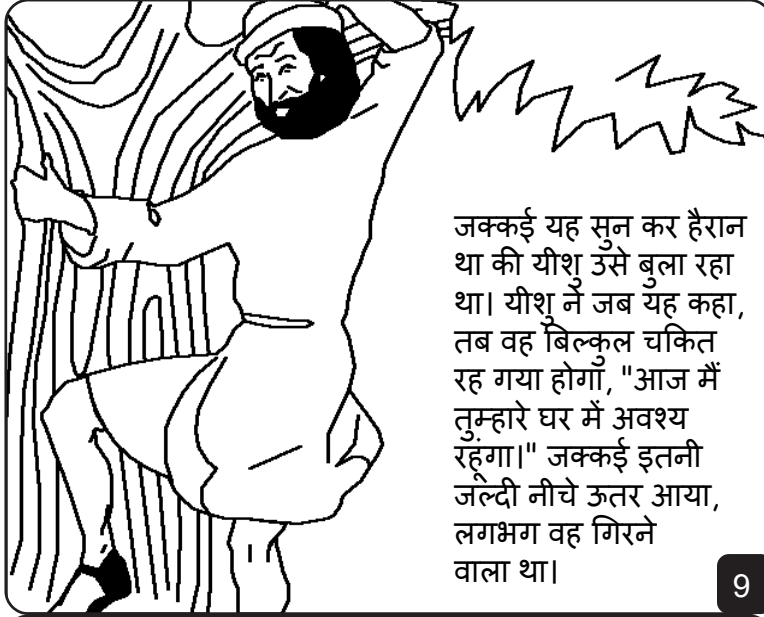 जक्कई यह सुन कर हैरान
था की यीशु उसे बुला रहा
था। यीशु ने जब यह कहा,
तब वह बिल्कुल चकित
रह गया होगा, "आज मैं
तुम्हारे घर में अवश्य
रहूंगा।" जक्कई इतनी
जल्दी नीचे ऊतर आया,
लगभग वह गिरने
वाला था।
9